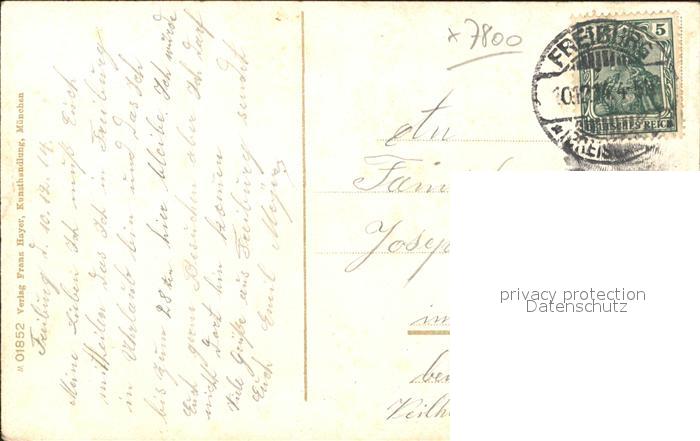 № 01852 Verlag Franz Hayer, Kunsthandlung, München
Freiburg d. 10.12.14.
Meine Lieben Ich muß Euch
mittheilen das Ich in Freiburg
in Uhrlaub bin und das Ich
bis zum 28ten hier bleibe. Ich würde
Euch gern Besuchen aber Ich darf
nicht dort hin kommen
Viele Grüße aus Freiburg sendet
Euch Emil
x 7800
FREIBURG
5
DEUTSCHES REICH
An
Fami
Josep
in
bei
privacy protection
Datenschutz